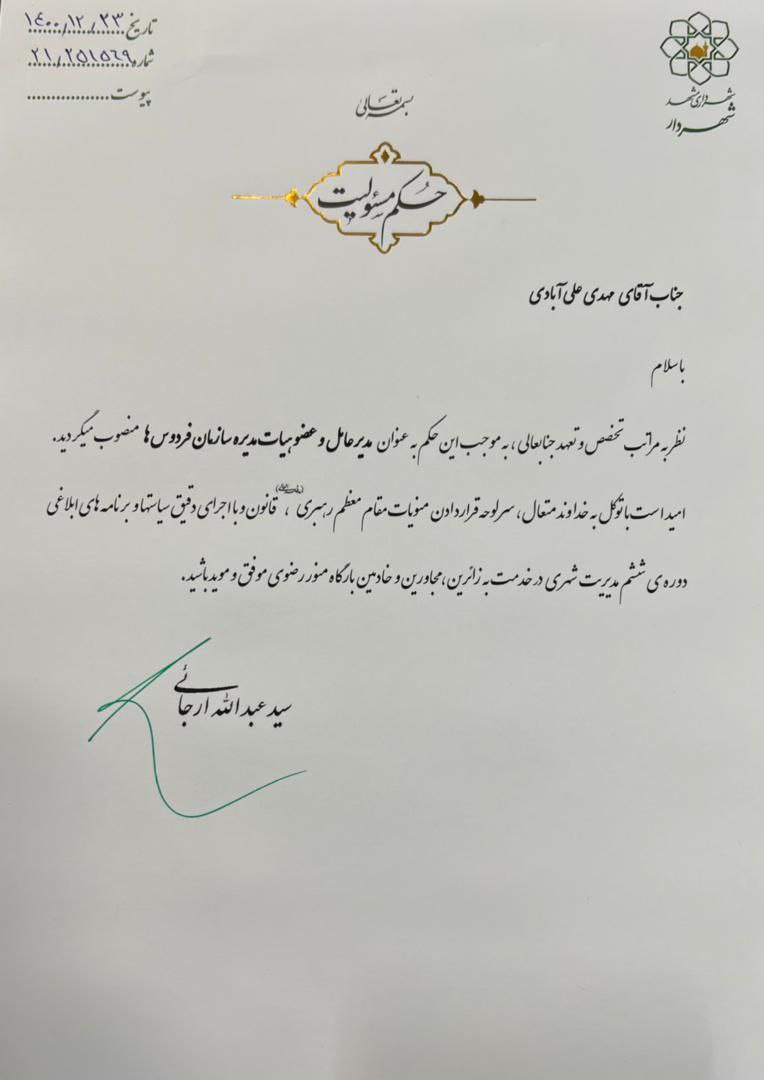 تاریخ ۱۴۰۰/۱۲/۲۳
شماره ۲۱/۲۵۱۵۶۹
پیوست
شهرداری مشهد
شهردار
بسمه تعالی
حکم مسئولیت
جناب آقای مهدی علی آبادی
با سلام
نظر به مراتب تخصص و تعهد جنابعالی، به موجب این حکم به عنوان مدیرعامل و عضو هیات مدیره سازمان فردوس ها منصوب میگردید.
امید است با توکل به خداوند متعال، سرلوحه قرار دادن منویات مقام معظم رهبری ، قانون و با اجرای دقیق سیاستها و برنامه های ابلاغی
دوره ی ششم مدیریت شهری در خدمت به زائرین، مجاورین و خادمین بارگاه منور رضوی موفق و موید باشید.
سید عبدالله ارجائی